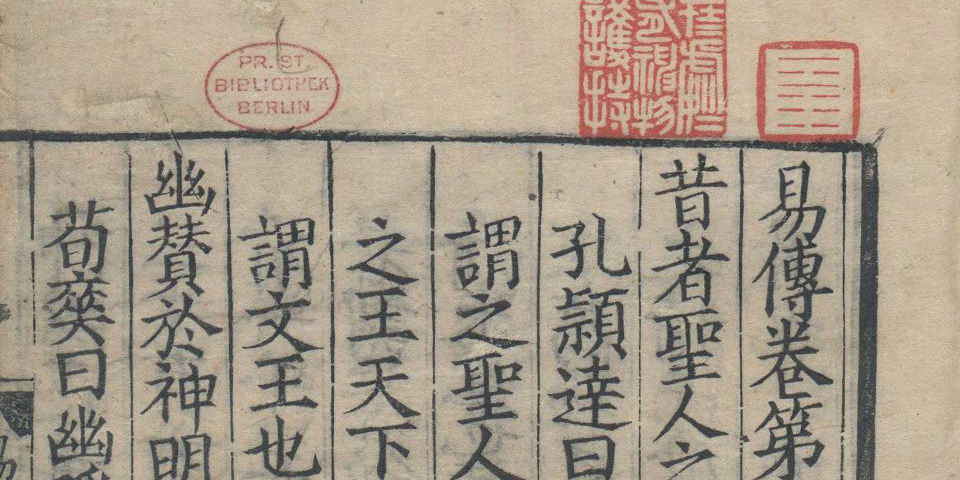 PR. ST.
BIBLIOTHEK
BERLIN
易傳卷第
昔者聖人之
孔頴達曰
謂之聖人
之王天下
謂文王也
幽賛於神明
荀爽曰幽